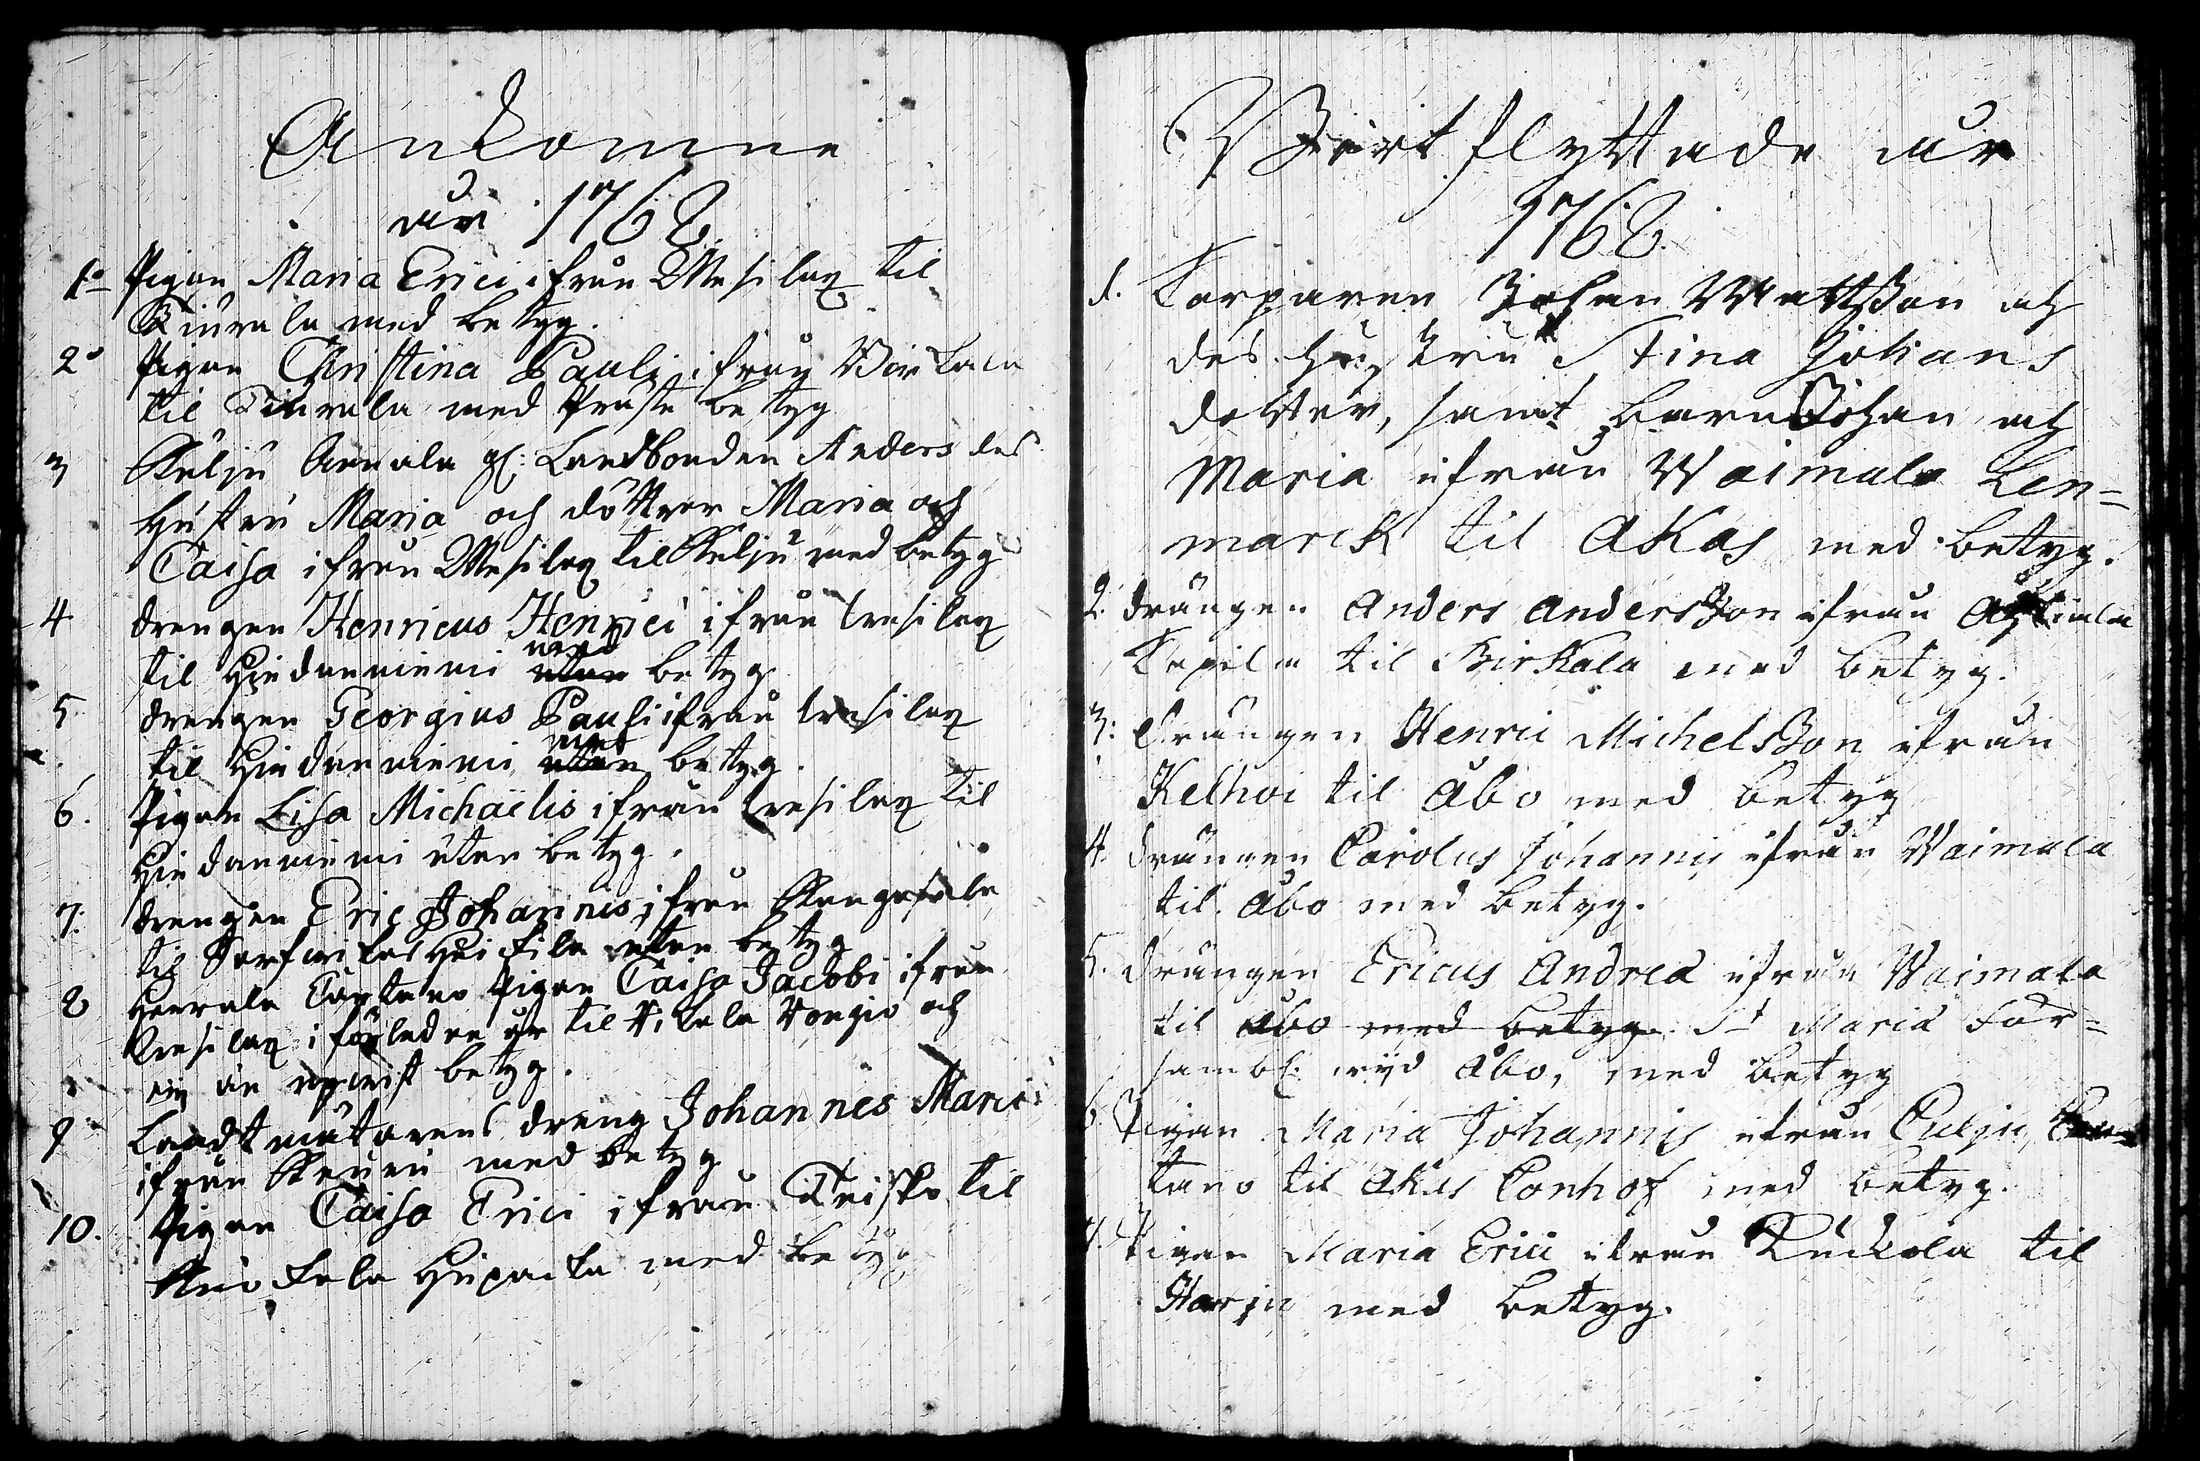 Ankomne
åhr 1768
1o Pigan Maria Erici ifrån Wesilax til
Tiurala med betyg.
2o Pigan Christina Pauli ifrån Birkala
til Tiurala med Preste betyg
3 Kulju Annala gl: Landbonden Anders des
Hustru Maria och döttrar Maria och
Caisa ifrån Wesilax til Kulju med betyg
4 drengen Henricus Henrici ifrån Wesilax
med
til Hiedanniemi utan betyg
5 drengen Georgius Pauli ifrån Wesilax
med
til Hiedanniemi utan betyg.
6. Pigan Lisa Michaelis ifrån Wesilax til
Hiedanniemi utan betyg.
7. drengen Eric Johannis ifrån Kangasala
til utan betyg
8 Herrala Pigan Caisa Jacobi ifrån
Wesilax i förledne år til och
ej än upwist betyg.
9 Landtmätarens dreng Johannes
ifrån Keuru med betyg
10. Pigan Caisa Erici ifrån Teisko til
med betyg
Bårtflyttade åhr
1768
1. Torparen Johan Mattsson och
des hustru Stina Johans
dotter, samt barn Johan och
Maria ifrån Waimala Len=
marck til Akas med betyg.
2. drängen Anders Andersson ifrån
til Birkala med betyg.
3: drängen Henric Michelsson ifrån
Kelhoi til Åbo med betyg
4. drängen Carolus Johannis ifrån Waimala
til Åbo med betyg.
5. drängen Ericus Andreä ifrån Waimala
til Åbo med betyg St Mariä För=
saml: wyd Åbo, med betyg
6. Pigan Maria Johannis ifrån Culju
tano til Akas Conhof med betyg.
7. Pigan Maria Erici ifrån til
Harju med betyg.